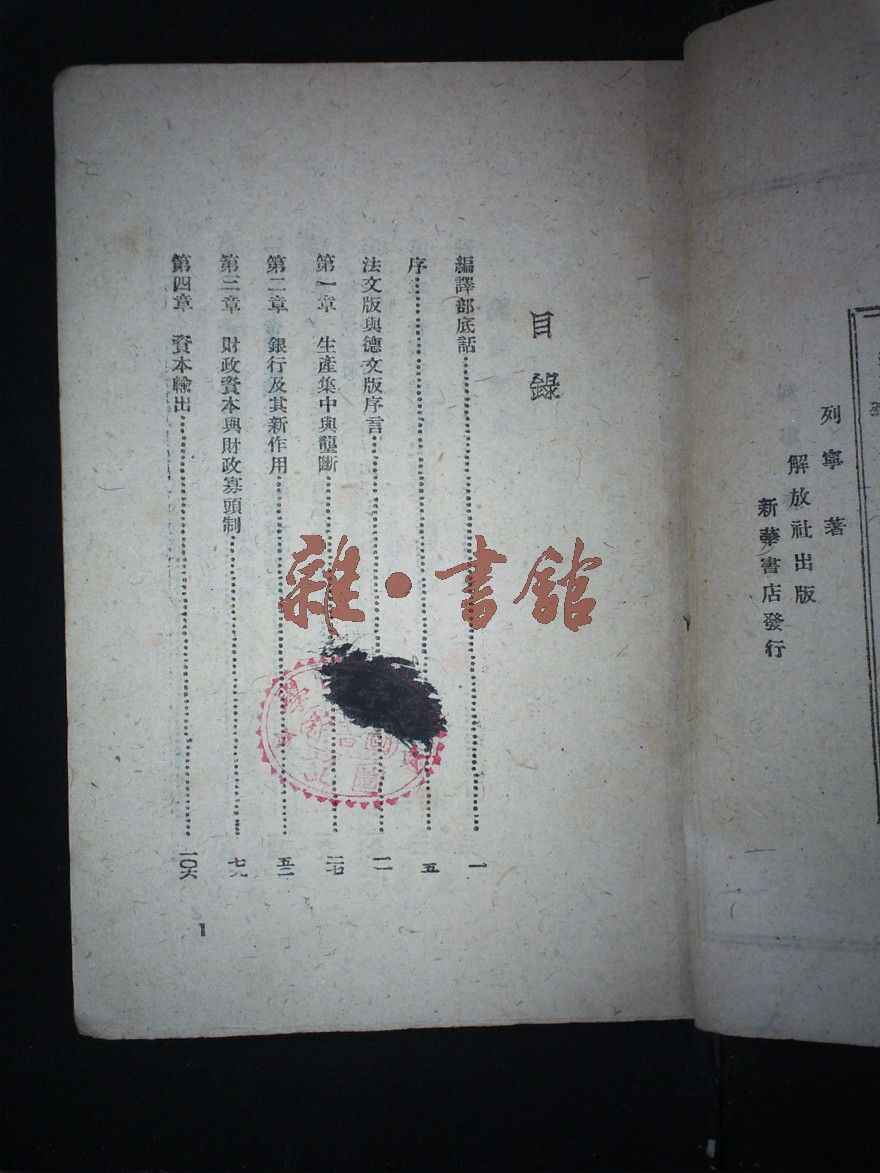 列寧著
解放社出版
新華書店發行
目錄
編譯部底話 一
序 五
法文版與德文版序言 一一
第一章 生產集中與壟斷 二七
第二章 銀行及其新作用 五二
第三章 財政資本與財政寡頭制 七九
第四章 資本輸出 一〇六
1
雜·書館